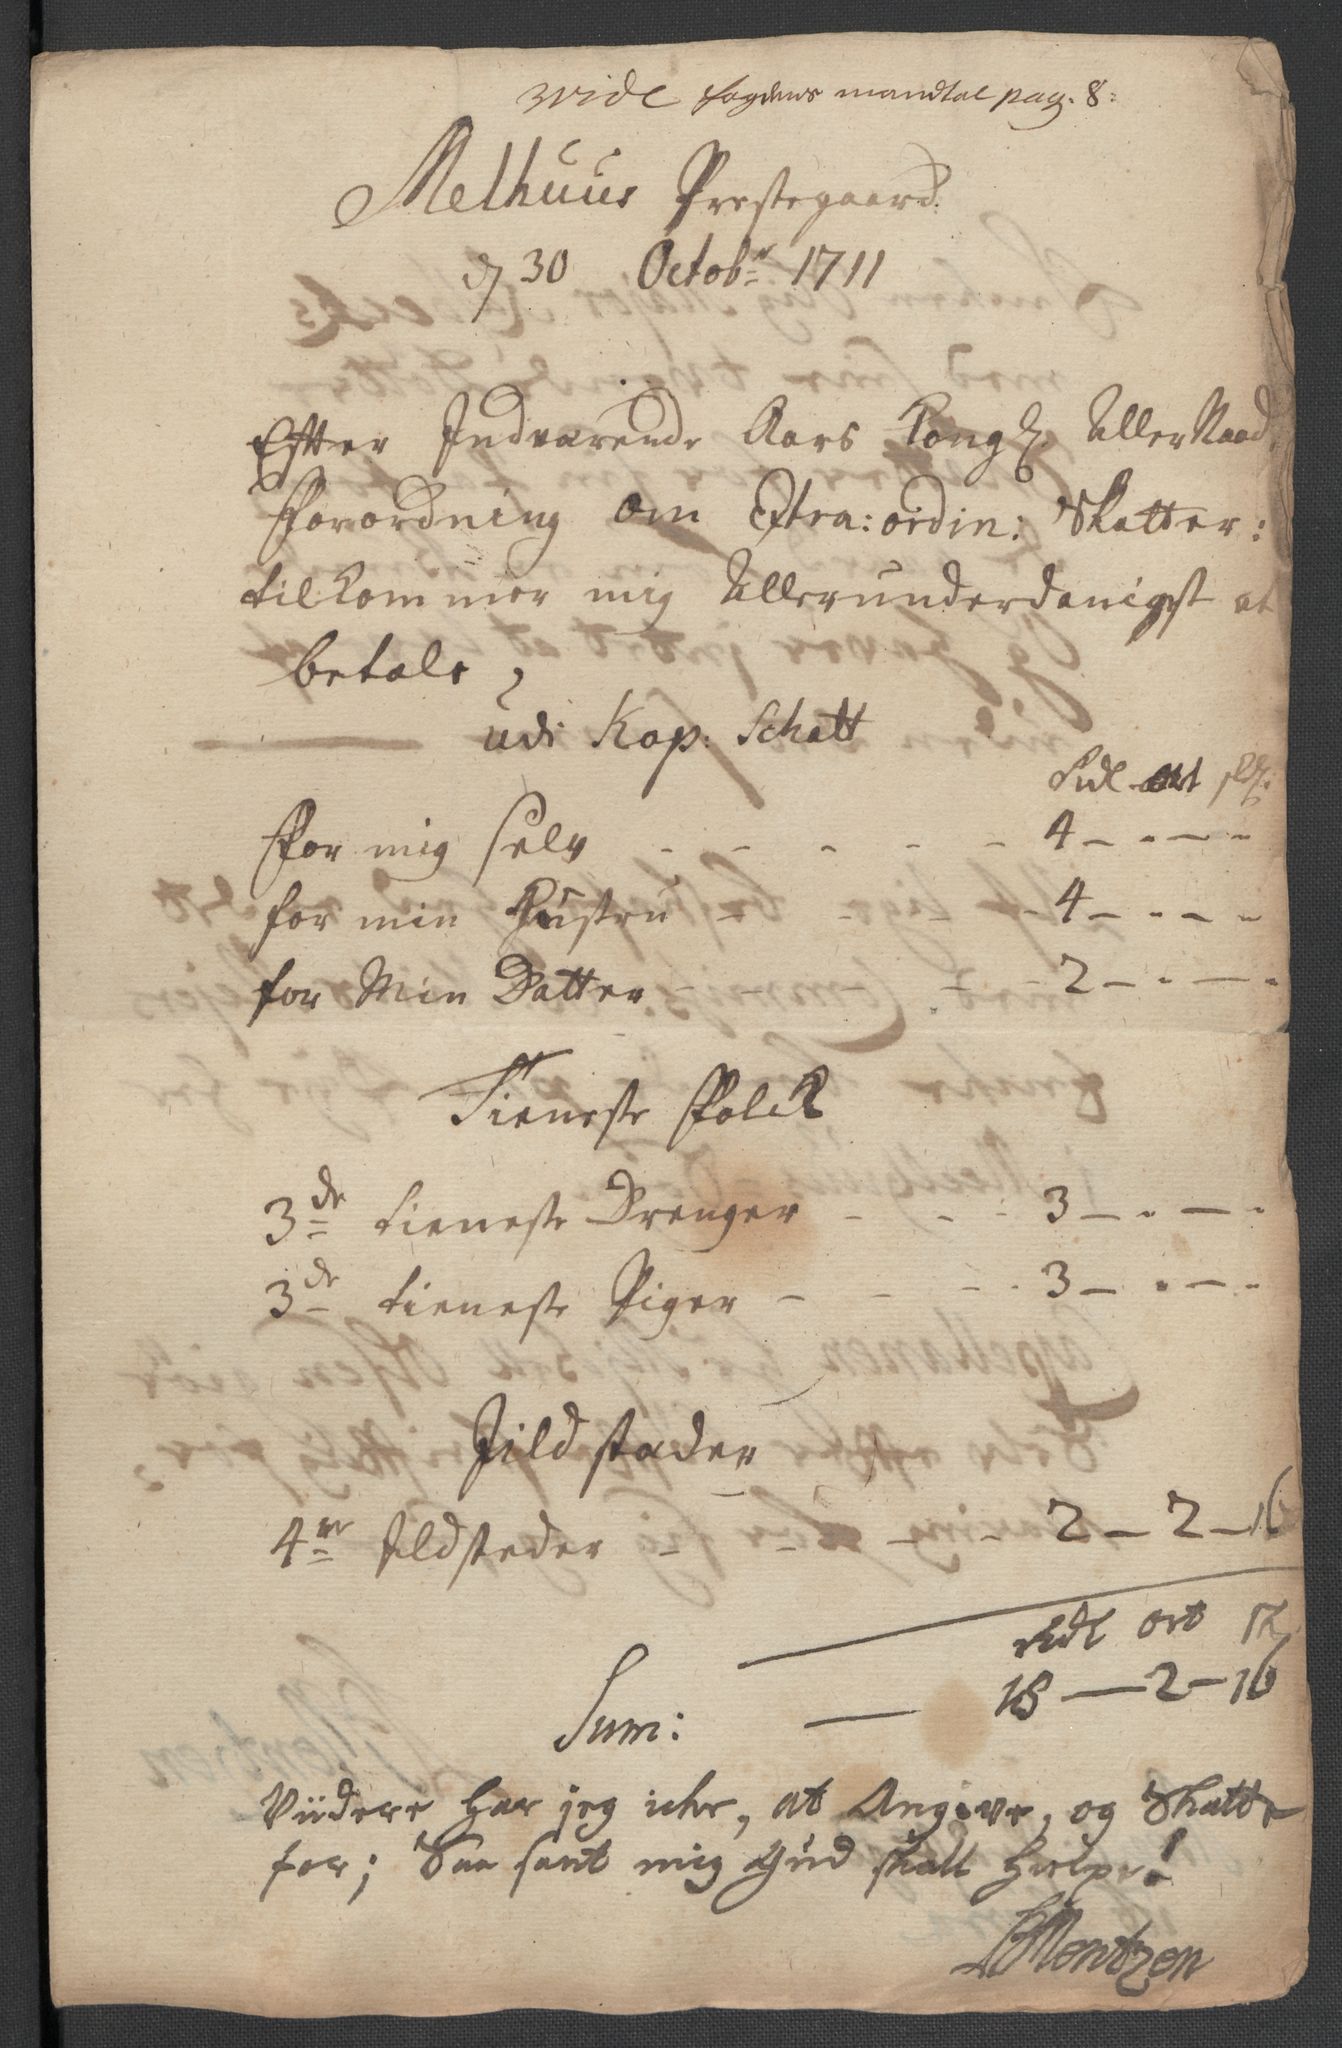 vide fogdens mandtal pag. 8:
Melhuus Prestegaard.
d 30 Octobr 1711
Efter Indværende Aars Kongl. AllerNaad.
Forordning om Extra: ordin: Skatter:
tilkommer mig Allerunderdanigst at
betale,
udi Kop. Schatt
Rdl ort sk.
For mig selv - - - - - 4 - - - -
for min Hustru - - - - 4 - - - -
for Min Datter - - - - 2 - - - -
Tieneste Folck
3de tieneste Drenger - - - 3 - - - -
3de tieneste Piger - - - - 3 - - - -
Jildstæder
4re Ildsteder - - - - 2 - 2 - 16
Rdl ort sk
Sum: — 18 — 2 - 16
Viidere har jeg icke, at Angive, og Skatte
for; Saa sant mig Gud skall hielpe!
Mentzen